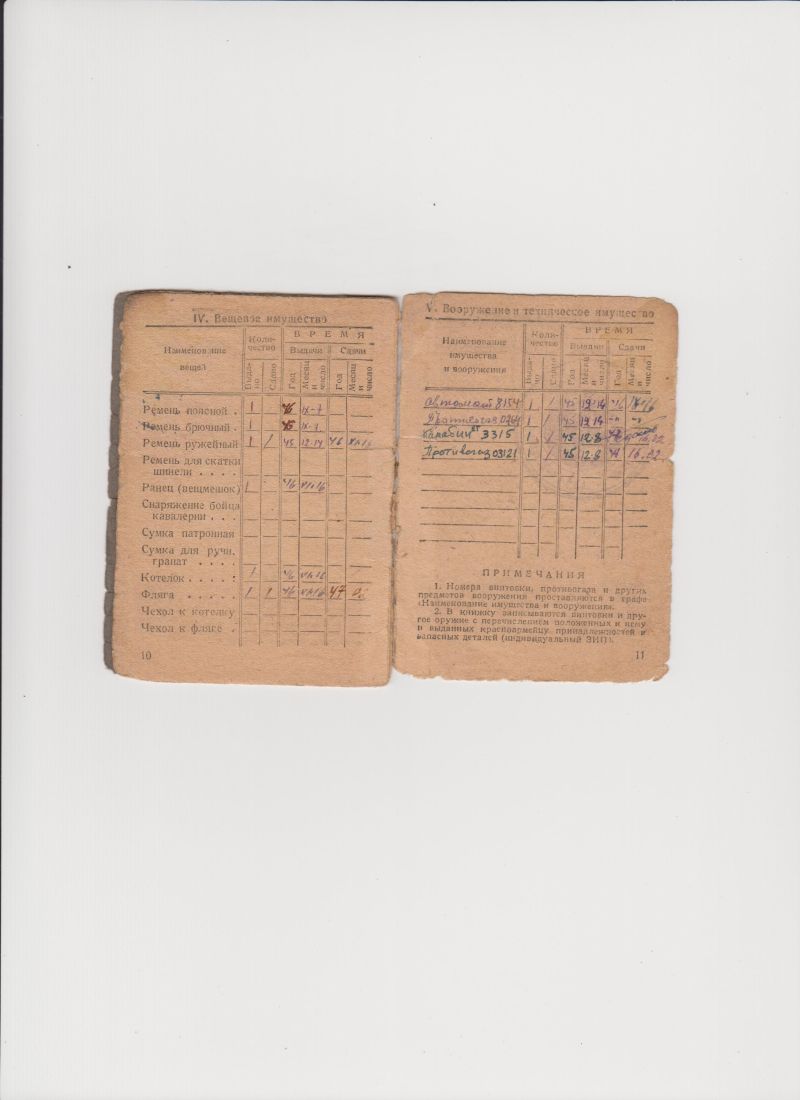 IV. Вещевое имущество
Наименование
вещей
Коли-
чество
ВРЕМЯ
Выдачи
Сдачи
Выда-
но
Сдано
Год
Месяц
и
число
Год
Месяц
и
число
Ремень поясной . 1 46 IX-7
Ремень брючный . 1 45 IX-7
Ремень ружейный 1 1 45 12-14 46
Ремень для скатки
шинели . . . .
Ранец (вещмешок) 1 46
Снаряжение бойца
кавалерии . . .
Сумка патронная
Сумка для ручн.
гранат . . . .
Котелок . . . . : 1 46
Фляга . . . . . 1 1 46 47
Чехол к котелку
Чехол к фляге .
10
V. Вооружение и техническое имущество
Наименование
имущества
и вооружения
Коли-
чество
ВРЕМЯ
Выдачи
Сдачи
Выда-
но
Сдано
Год
Месяц
и
число
Год
Месяц
и
число
Автомат 8154 1 1 45 12-14
1 1 45 12-14
Карабин 3315 1 1 45 12-8
Противогаз 03121 1 1 45 12-8 16.02
ПРИМЕЧАНИЯ
1. Номера винтовки, противогаза и других
предметов вооружения проставляются в графе
«Наименование имущества и вооружения».
2. В книжку записываются винтовки и дру-
гое оружие с перечислением положенных к нему
и выданных красноармейцу принадлежностей и
запасных деталей (индивидуальный ЗИП).
11